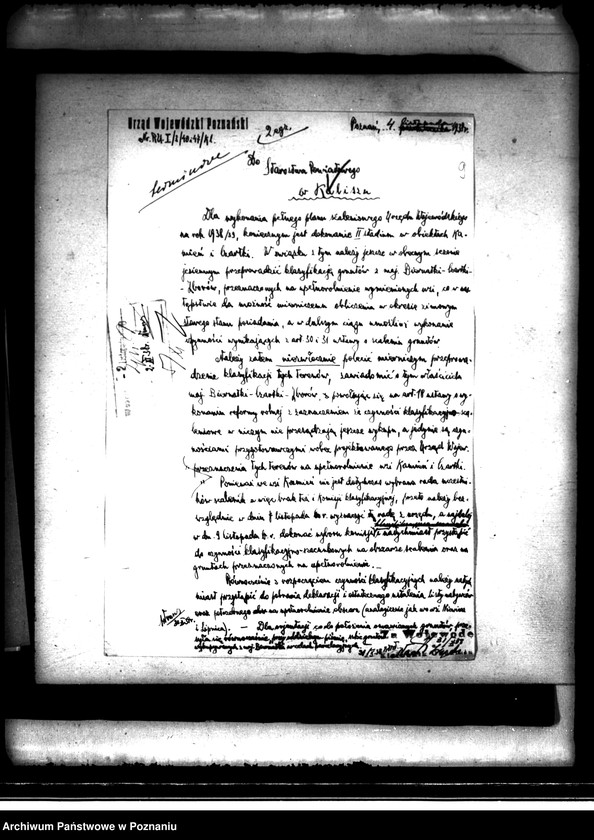 Urząd Wojewódzki Poznański
2 egz.
Poznań, 4. 1938r.
9
Do
Starostwa Powiatowego
w Kaliszu
Dla wykonania pełnego planu scaleniowego Urzędu Wojewódzkiego
na rok 1938/39, koniecznym jest dokonanie II stadium w obiektach Ka-
mień i Czartki. W związku z tym należy jeszcze w obecnym sezonie
jesiennym przeprowadzić klasyfikację gruntów z maj. Biernatki-Czartki-
-Zborów, przeznaczonych na upełnorolnienie wymienionych wsi, co w na-
stępstwie da możność mierniczemu obliczenia w okresie zimowym
starego stanu posiadania, a w dalszym ciągu umożliwi wykonanie
czynności wynikających z art. 30 i 31 ustawy o scaleniu gruntów.
Należy zatem niezwłocznie polecić mierniczym przeprowa-
dzenie klasyfikacji tych terenów, zawiadomić o tym właścicieli
maj. Biernatki-Czartki-Zborów, z powołując się na art. 18 ustawy o wy-
konaniu reformy rolnej z zaznaczeniem że czynności klasyfikacyjno-sza-
cunkowe w niczym nie przesądzają jeszcze wykupu, a jedynie są czyn-
nościami przygotowawczymi wobec projektowanego przez Urząd Wojew.
przeznaczenia tych terenów na upełnorolnienie wsi Kamień i Czartki.
Ponieważ we wsi Kamień nie jest dotychczas wybrana rada uczestni-
ków scalenia a więc brak też i komisji klasyfikacyjnej, przeto należy bez-
względnie w dniu listopada b.r. wyznaczyć tę radę z urzędu, a najdalej
w dn. 9 listopada b.r. dokonać wyboru komisji i natychmiast przystąpić
do czynności klasyfikacyjno-szacunkowych na obszarze scalenia oraz na
gruntach przeznaczonych na upełnorolnienie. —
Równocześnie z rozpoczęciem czynności klasyfikacyjnych należy natych-
miast przystąpić do pobrania deklaracji i ostatecznego ustalenia listy nabywców
oraz potrzebnego na upełnorolnienie obszaru (analogicznie jak we wsi Kamień
i Lipnica). — Dla orientacji co do położenia oznaczonych gruntów, prze-
syła się równocześnie, przy oddzielnym piśmie,
Wojewodę
Archiwum Państwowe w Poznaniu